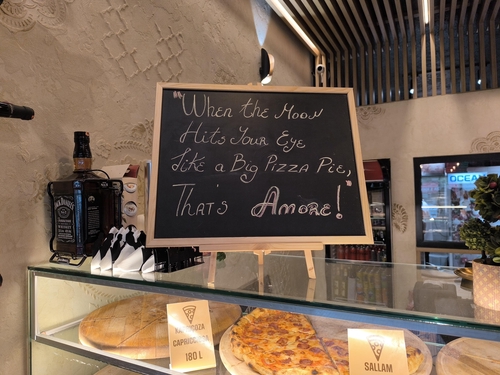 "When the Moon
Hits Your Eye
Like a Big Pizza Pie,"
That's Amore!
OCEAN
CAPRICCIOZA
180 L
SALLAM